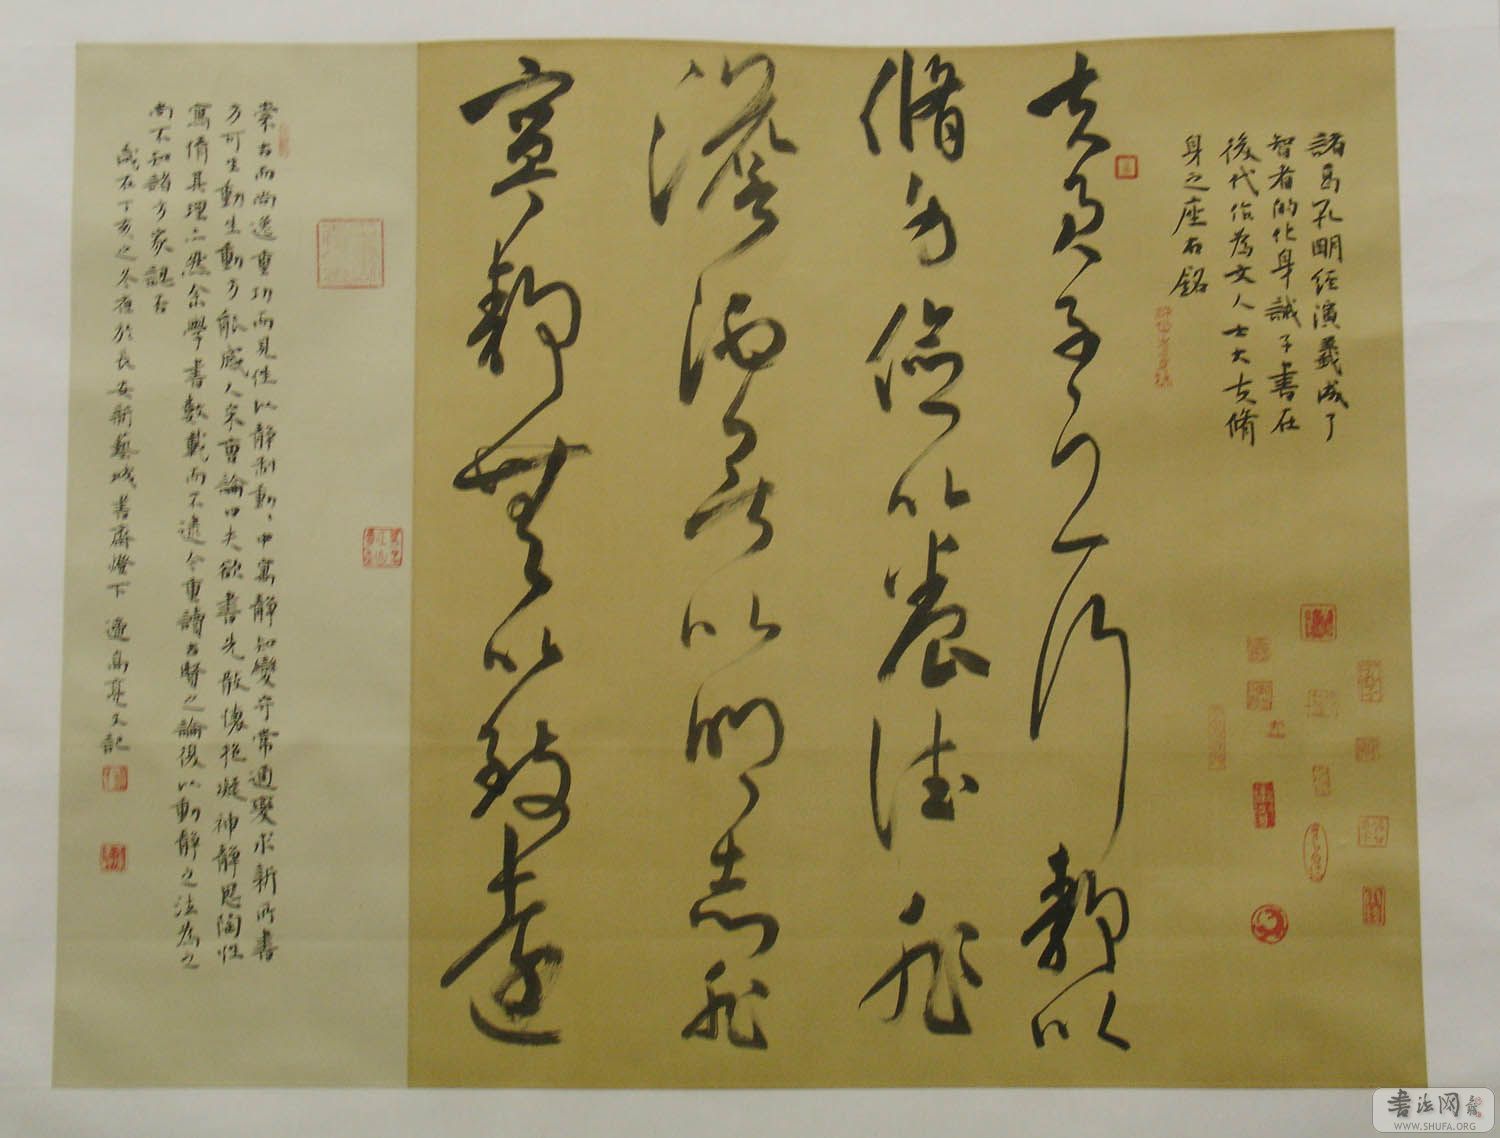 諸葛孔明經演義成了
智者的化身誡子書在
後代作為文人士大夫脩
身之座右銘
夫君子之行靜以
脩身儉以養德非
澹泊無以明志非
寧靜無以致遠
崇古而尚逸重功而見性以靜制動動中寓靜知變守常適變求新所書
方可生動生動方能感人宋曹論曰夫欲書先散懷抱凝神靜思陶性
寫情其理亦然余學書數載而不逮今重讀古賢之論後以動靜之法為之
尚不知諸方家認否
歲在丁亥之冬夜於長安新藝城書齋燈下 逸高亮又記
書法网
WWW.SHUFA.ORG